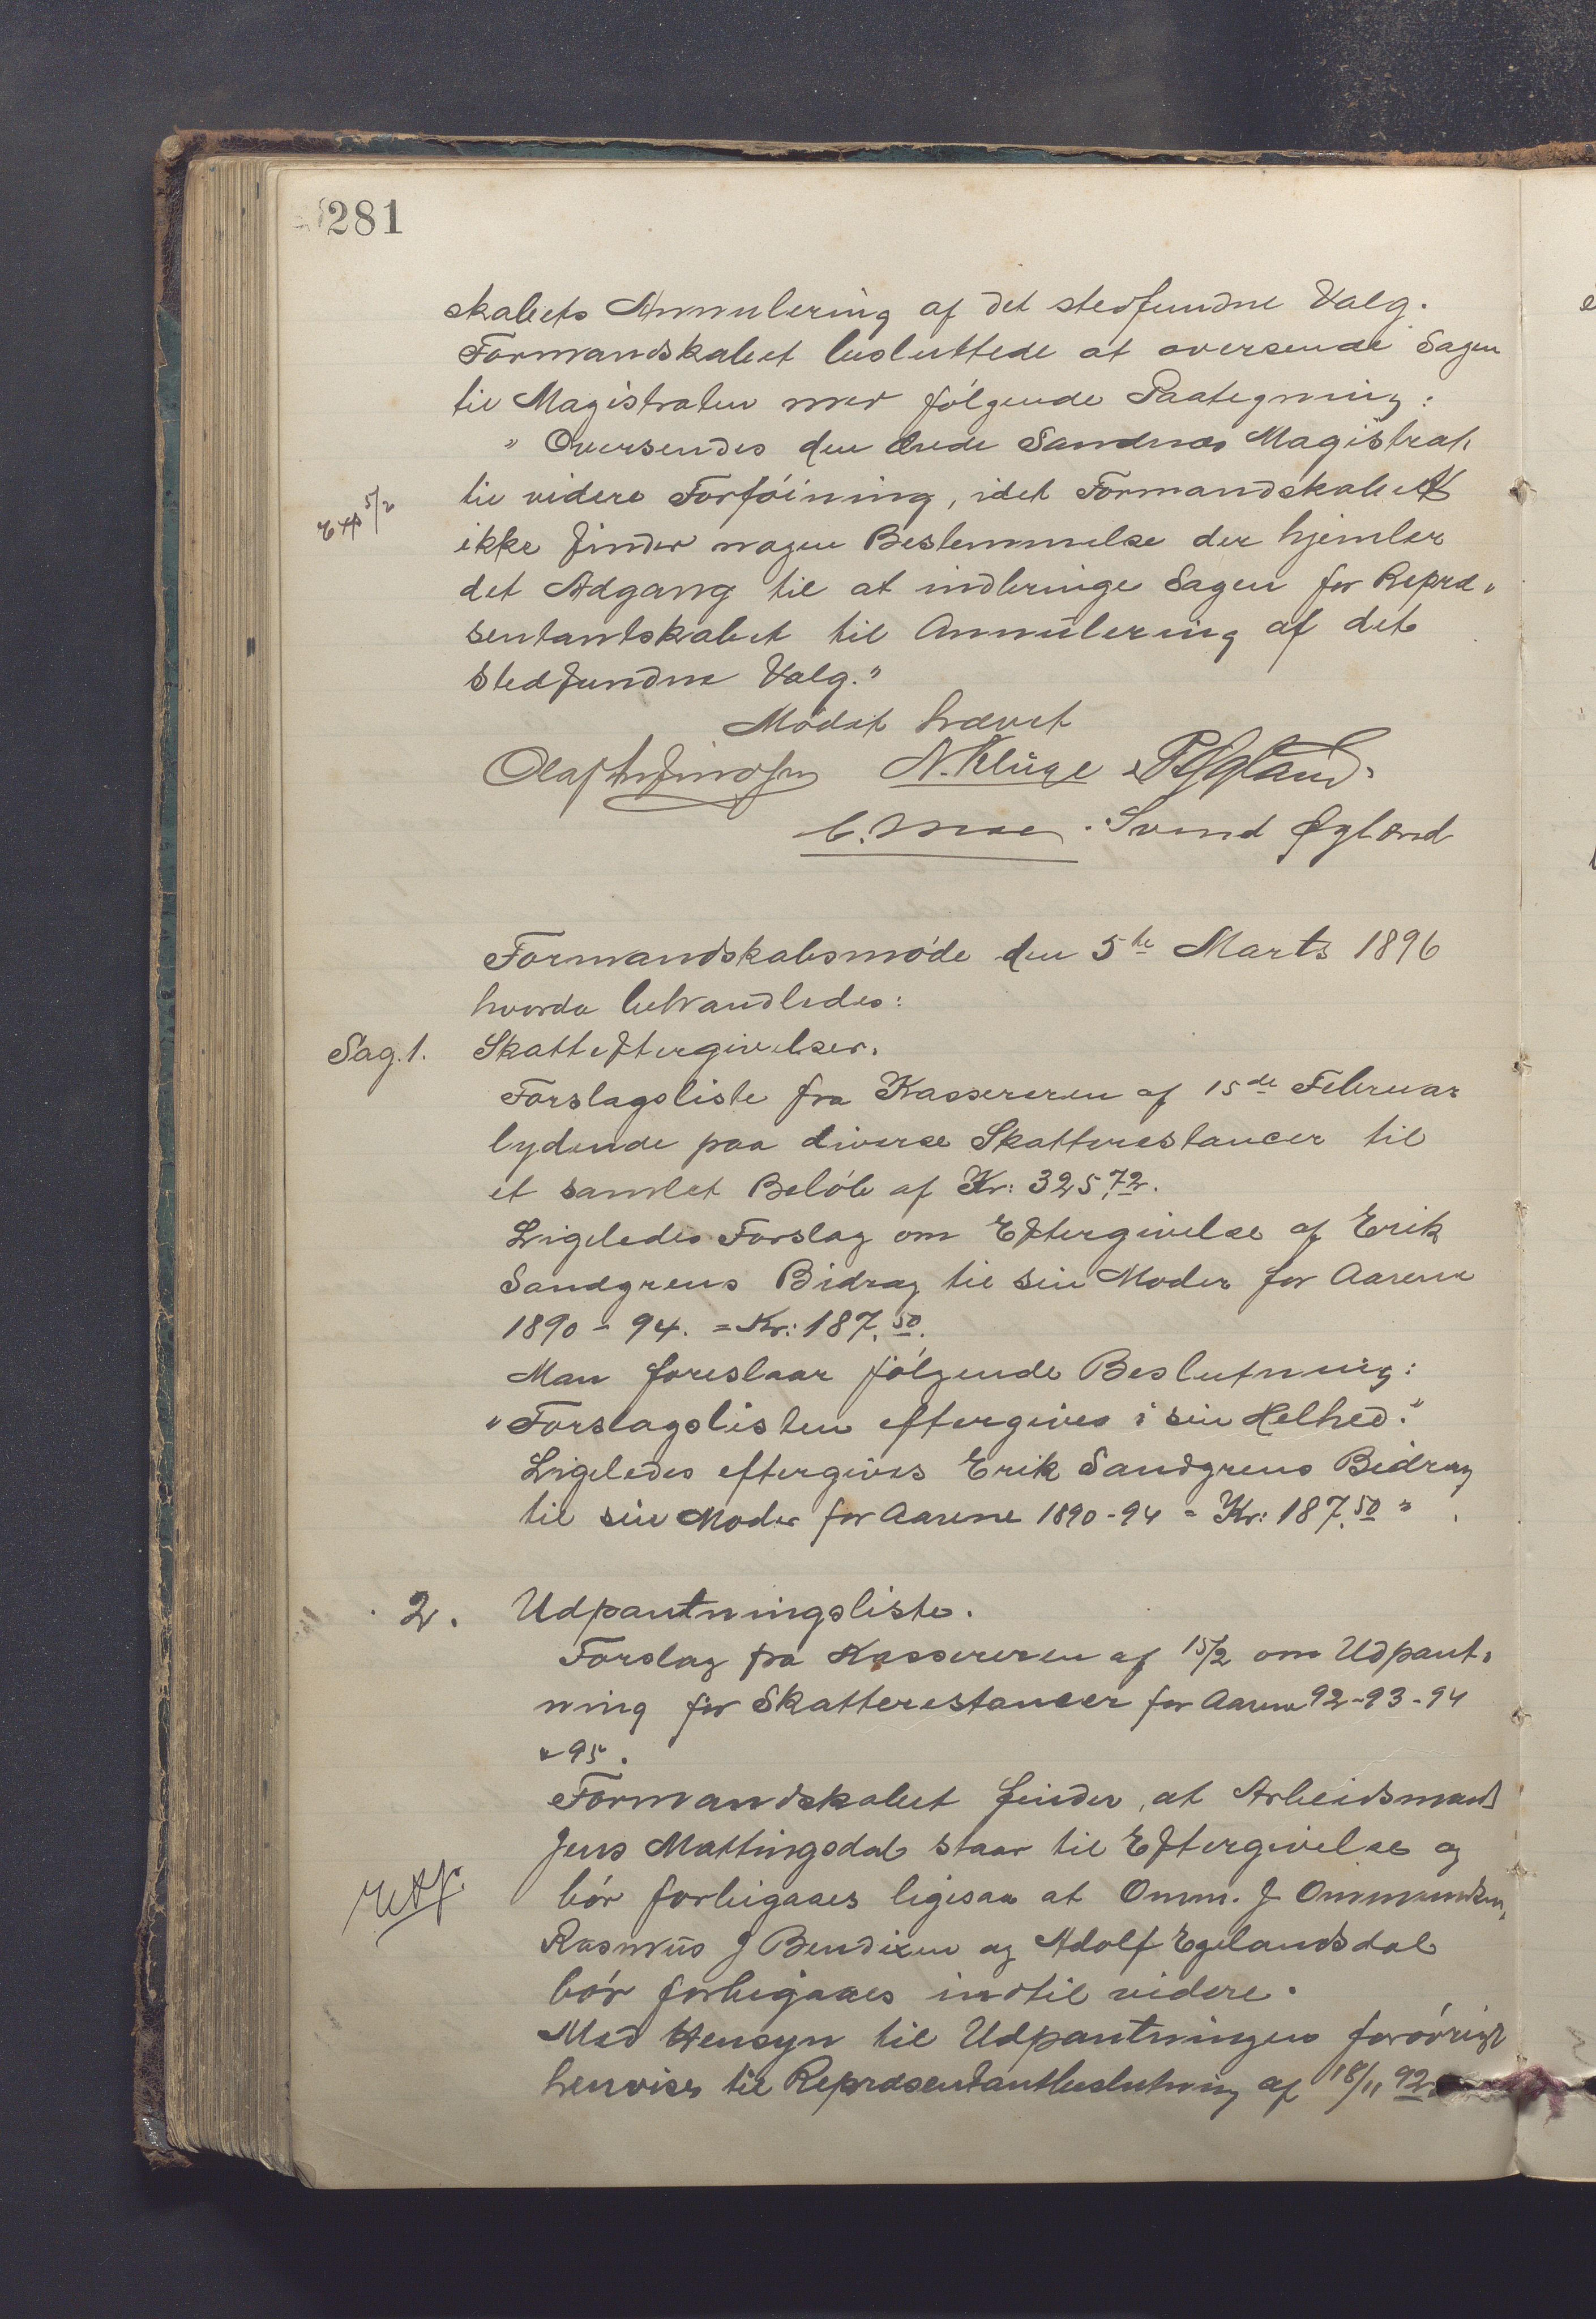 281
skabets Annulering af det stedfundne Valg.
Formandskabet besluttede at oversende Sagen
til Magistraten med følgende Paategning:
"Oversendes den ærede Sandnæs Magistrat
Exp 5/2
til videre Forføining, idet Formandskabet
ikke finder nogen Bestemmelse der hjemler
det Adgang til at indbringe Sagen for Repræ-
sentantskabet til Annulering af det
stedfundne Valg."
Mødet hævet
N. Kluge
Svend Øgland
Formandskabsmøde den 5te Marts 1896
hvorda behandledes:
Sag. 1. Skatteftergivelser.
Forslagsliste fra Kassereren af 15de Februar
lydende paa diverse Skatterestancer til
et samlet Beløb af Kr: 325,72.
Ligeledes Forslag om Eftergivelse af Erik
Sandgrens Bidrag til sin Moder for Aarene
1890 - 94. = Kr: 187.50.
Man foreslaar følgende Beslutning:
"Forslagslisten eftergives i sin Helhed."
Ligeledes eftergives Erik Sandgrens Bidrag
til sin Moder for Aarene 1890-94 = Kr: 187.50"
2. Udpantningsliste.
Forslag fra Kassereren af 15/2 om Udpant-
ning for Skatterestancer for Aarene 92-93-94
& 95.
Formandskabet finder, at Arbeidsmand
Jens Mattingsdal staar til Eftergivelse og
bør forbigaaes ligesaa at Omm. J Ommundsen,
Rasmus J Bendixen og Adolf Egelandsdal
bør forbigaaes indtil videre.
Med Hensyn til Udpantningen forøvrigt
henvises til Repræsentantbeslutning af 18/11 92.